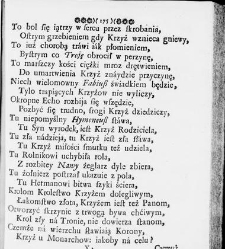 175
To boł się jątrzy w ſercu przez ſkrobania,
Oſtrym grzebieniem gdy Krzyż wznieca gniewy,
To iuż chorobą trawi iak płomieniem,
Byſtrym co Troię obrocił w perzynę,
To marſzczy kości ciężki mroz drętwieniem,
Do umartwienia Krzyż znaydzie przyczynę,
Niech wielomowny Fabiuſz świadkiem będzie,
Tylo trapiących Krzyżow nie wyliczy,
Okropne Echo rozbija ſię wſzędzie,
Pozbyć ſię trudno, ſrogi Krzyż dziedziczy,
Tu niepomyślny Hymeneuſz ſtawa,
Tu Syn wyrodek, ieſt Krzyż Rodziciela,
Tu zła nadzieja, tu Krzyżem zła ſława,
Tu Krzyż miłości ſmutku też udziela,
Tu Rolnikowi uchybiła rola,
Z rozbitey Nawy żeglarz dyle zbiera,
Tu żołnierz poſtrzał ukazuie z pola,
Tu Hetmanowi bitwa ſzyki ściera,
Krolom Kroleſtwo Krzyżem dolegliwym,
Łakomſtwo złota, Krzyżem ieſt Panom,
Otworzyć ſkrzynie z trwogą bywa chciwym,
Krol zły na Tronie, nie dowierza ſtanom,
Czemże na wierzchu ſtawiają Korony,
Krzyż u Monarchow: iakoby na celu?